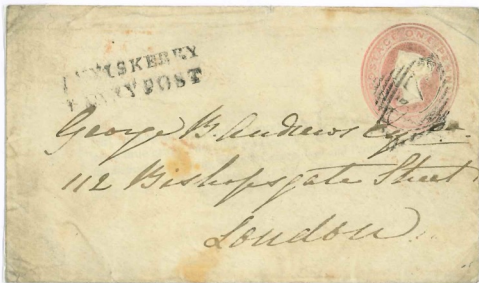 ENNISKERRY
PENNY POST
POSTAGE ONE PENNY
George B. Andrews Esqre.
112 Bishopsgate Street
London